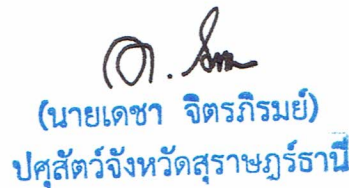 (นายเดชา จิตรภิรมย์)
ปศุสัตว์จังหวัดสุราษฎร์ธานี